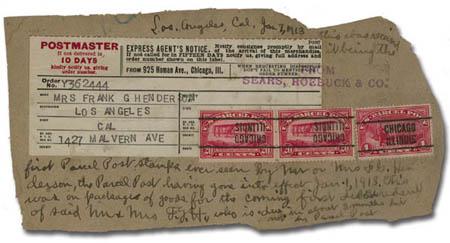 Los Angeles, Cal. Jan 7, 1913
POSTMASTER
If not delivered in
10 DAYS
kindly notify us, giving
order number.
EXPRESS AGENT'S NOTICE. Notify consignee promptly by mail
if not called for in FIFTEEN DAYS notify us, giving full address and
order number shown on this label.
FROM 925 Homan Ave., Chicago, Ill.
WHEN REQUESTING DISPOSITION
DON'T FAIL TO MENTION OUR
ORDER NUMBER.
FROM
SEARS, ROEBUCK & CO.
Order No. Y362444
MRS FRANK G HENDERSON
LOS ANGELES
CAL
1427 MALVERN AVE
PARCEL POST
CHICAGO
ILLINOIS
PARCEL POST
CHICAGO
ILLINOIS
PARCEL POST
CHICAGO
ILLINOIS
first Parcel Post stamps ever seen by Mr or Mrs
the Parcel Post having gone into effect Jan 1, 1913. This
was on packages of goods for the coming first
of said Mr & Mrs who is due in about 3 months
Parcel Post